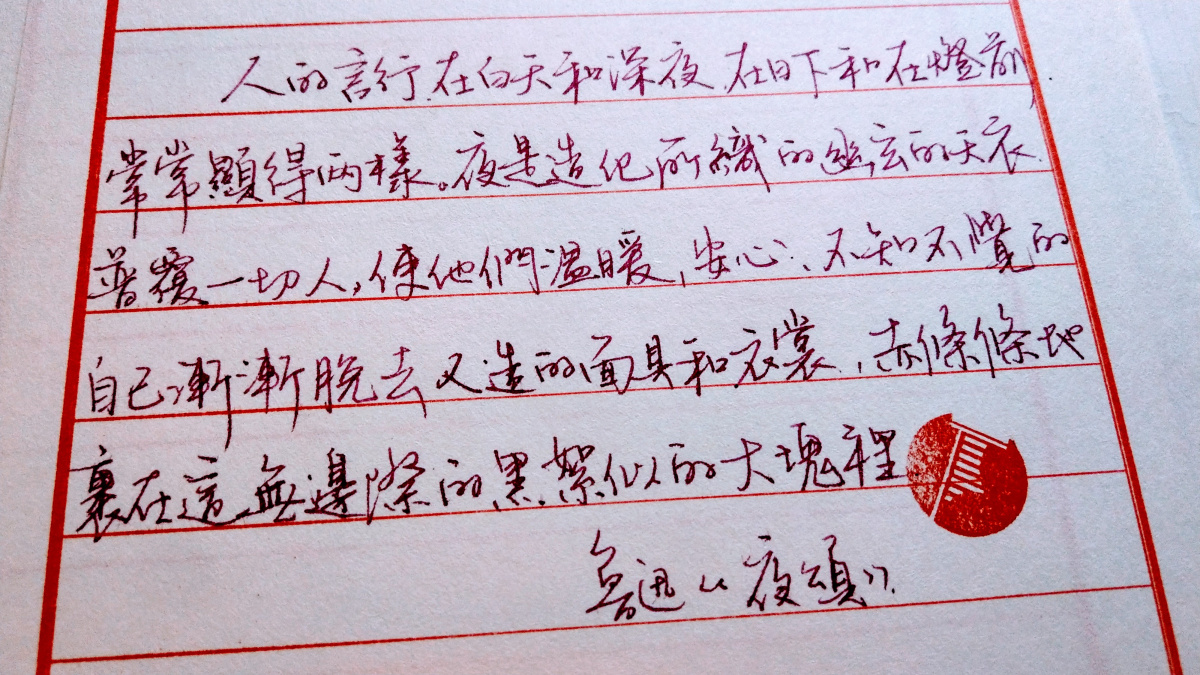 人的言行,在白天和深夜,在日下和在燈前,
常常顯得兩樣。夜是造化所織的幽玄的天衣,
普覆一切人,使他們溫暖,安心,不知不覺的
自己漸漸脫去人造的面具和衣裳,赤條條地
裹在這無邊際的黑絮似的大塊裡
魯迅《夜頌》